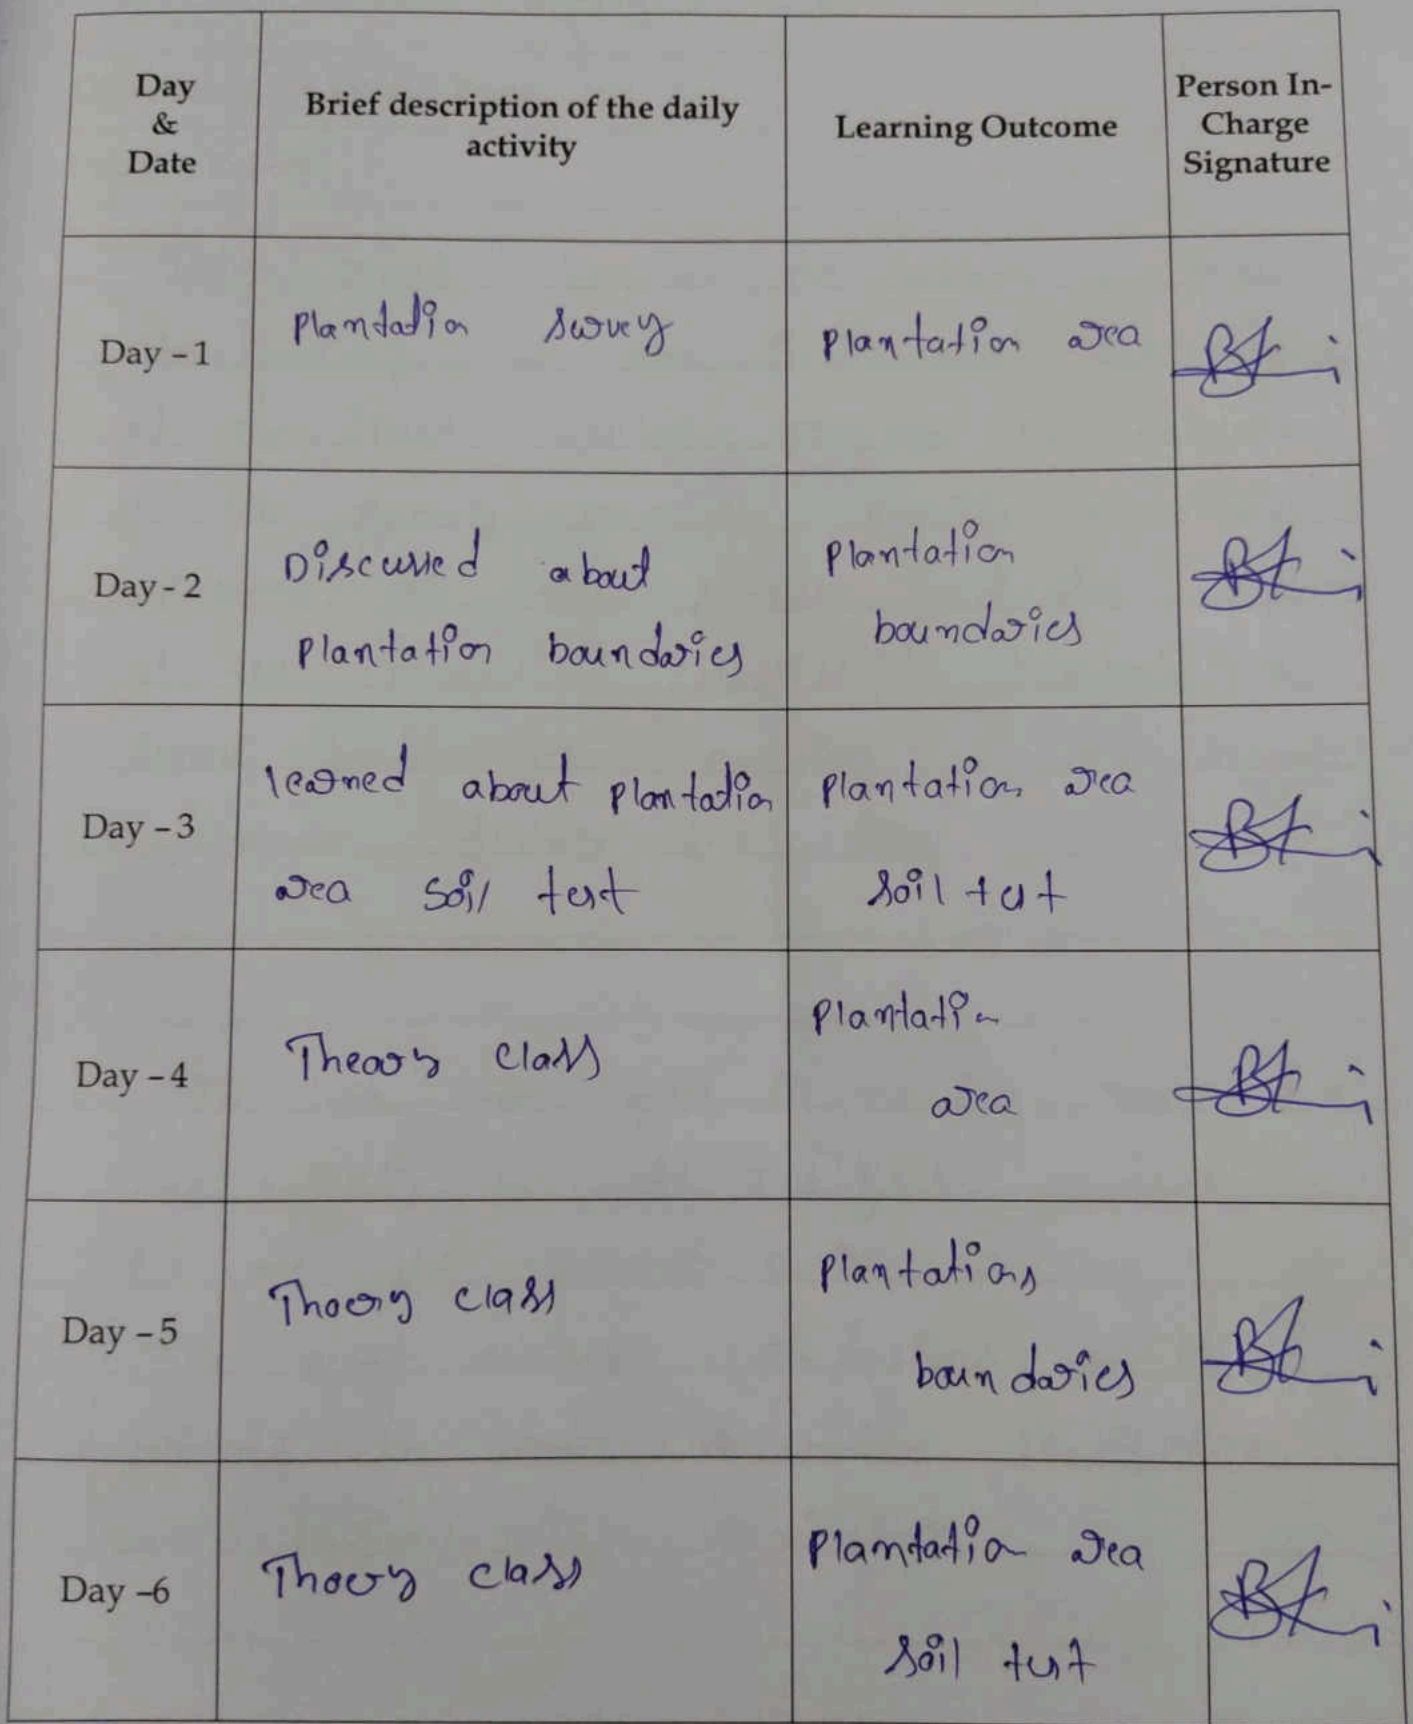 Day & Date
Brief description of the daily activity
Learning Outcome
Person In-Charge Signature
Day - 1
Plantation survey
Plantation area
Day - 2
Discussed about
Plantation boundaries
Plantation
boundaries
Day - 3
learned about plantation
area soil test
Plantation area
soil test
Day - 4
Theory class
Plantation
area
Day - 5
Thoery class
Plantations
boundaries
Day -6
Thoery class
Plantation area
soil test